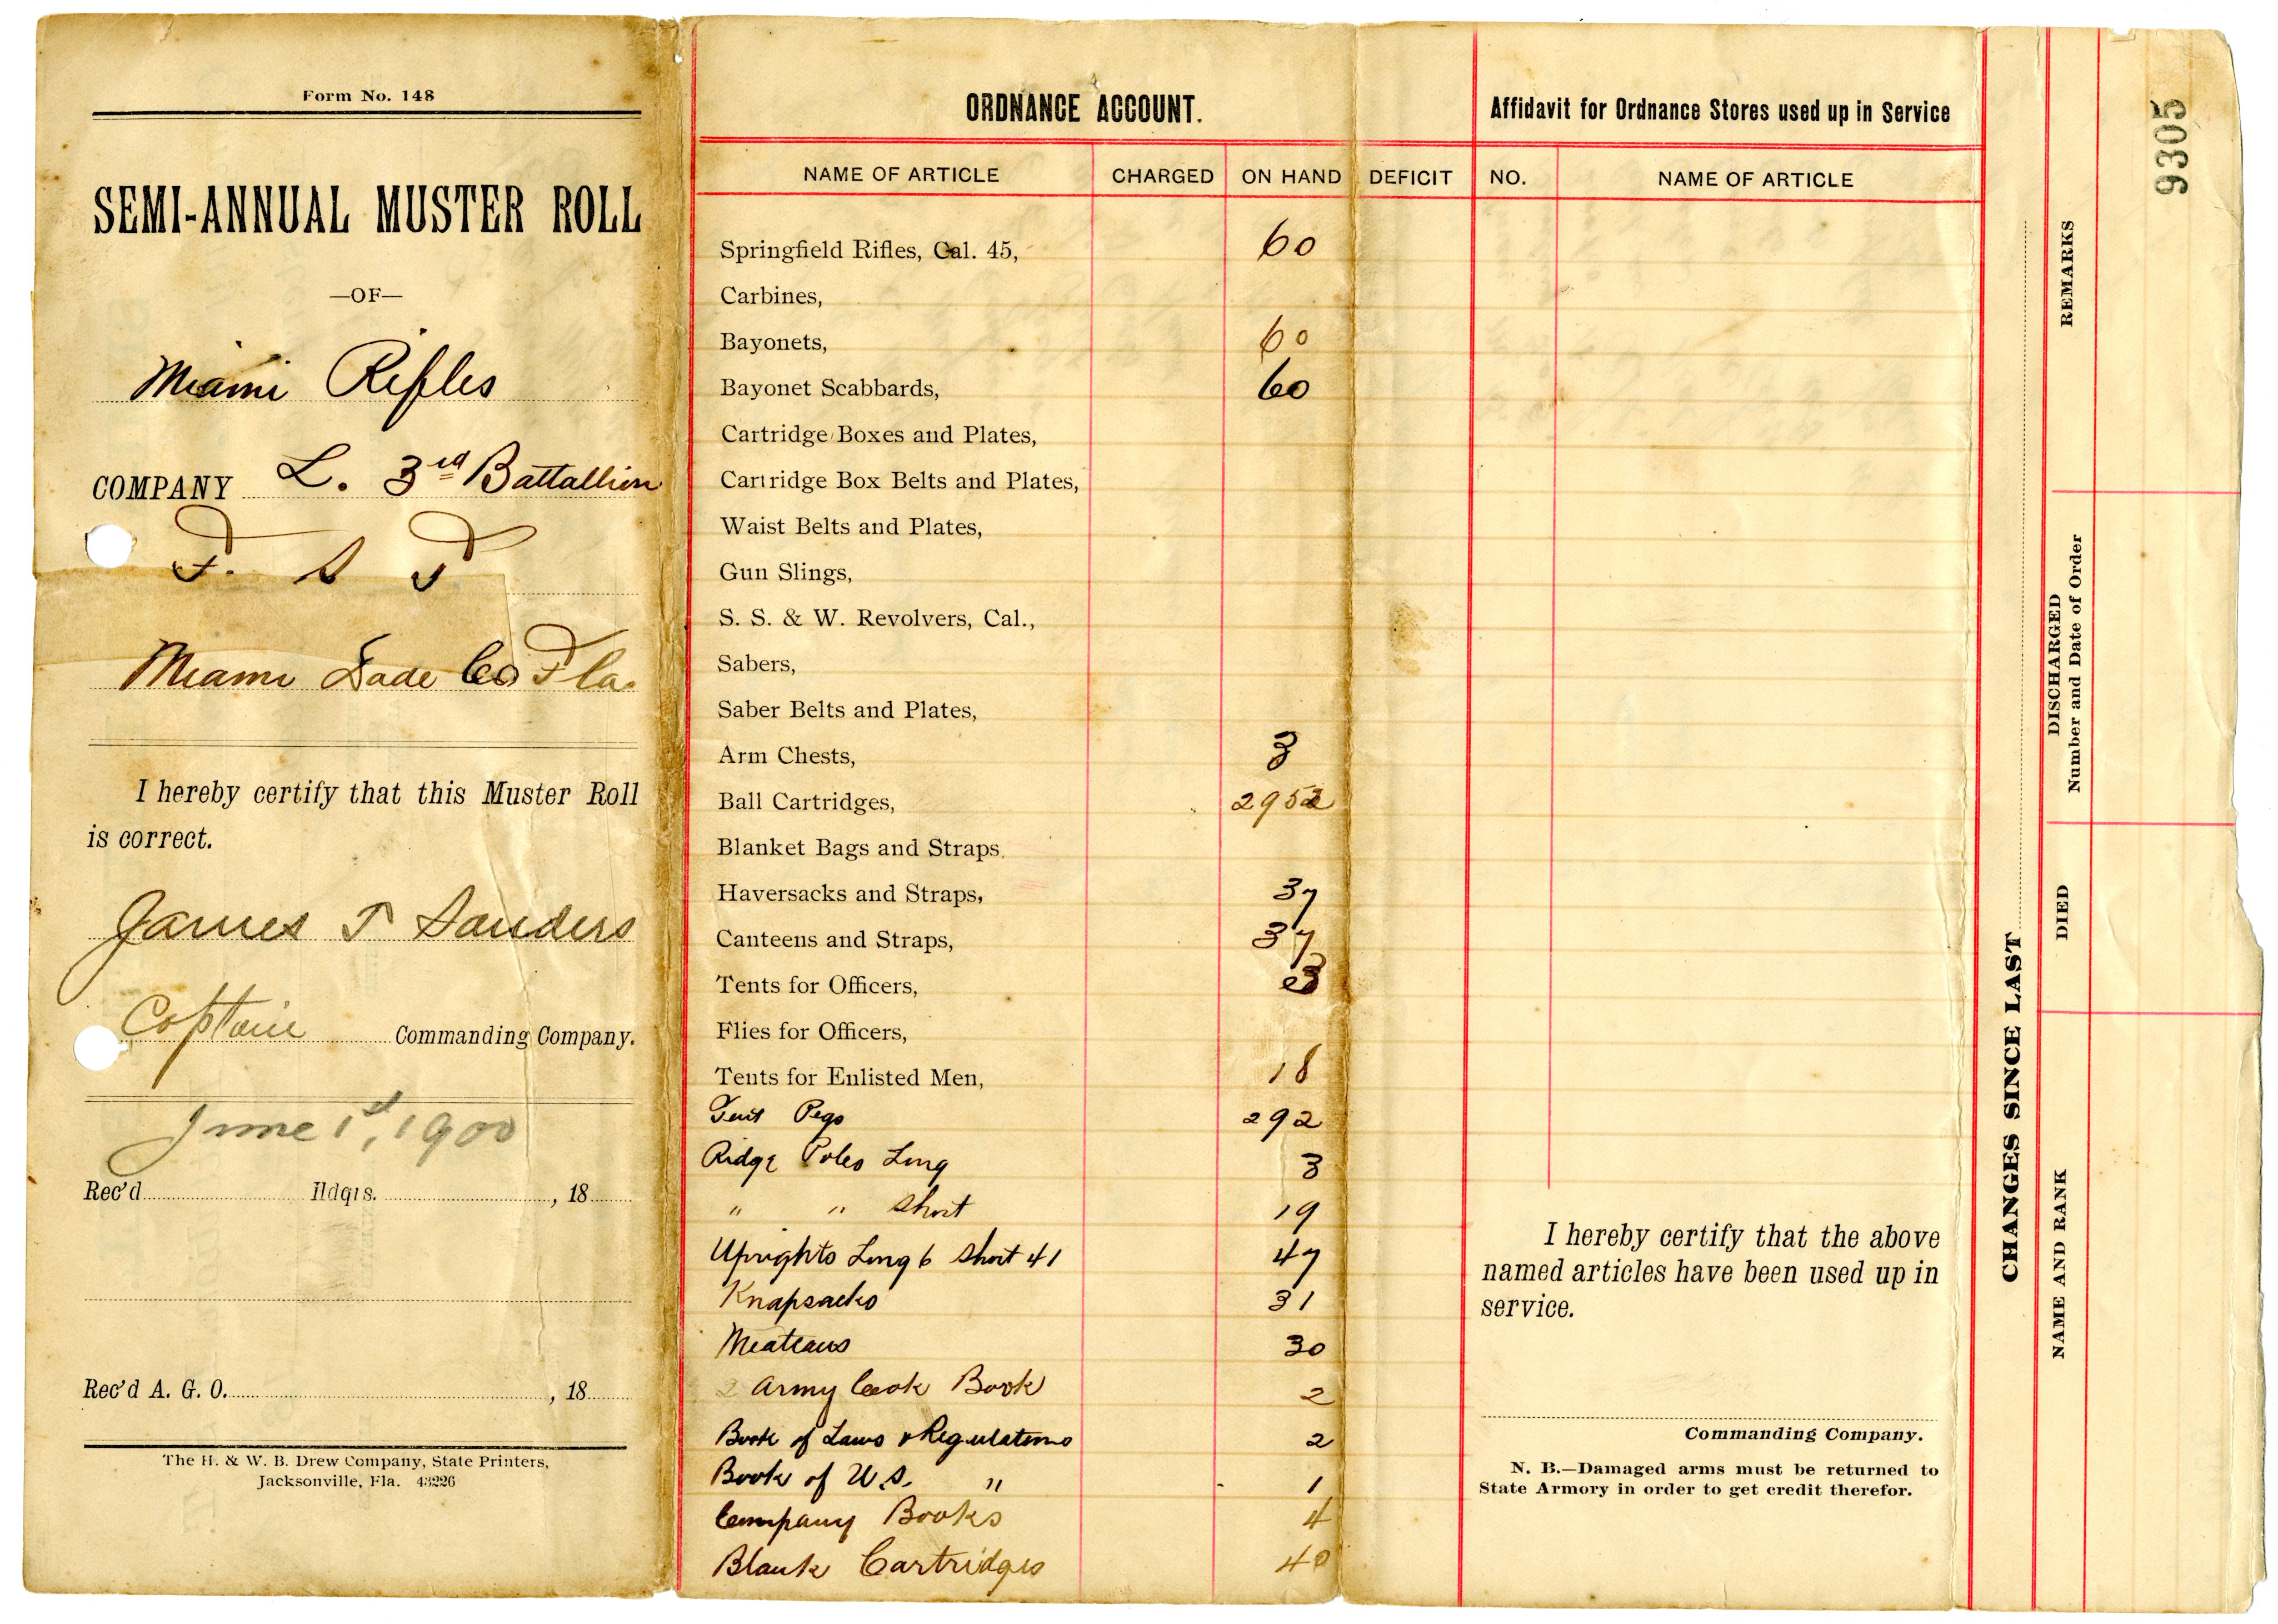 Form No. 148
SEMI-ANNUAL MUSTER ROLL
—OF—
Miami Rifles
COMPANY L. 3rd Battallion
F. S T
Miami Dade Co Fla.
I hereby certify that this Muster Roll
is correct.
James T Sanders
Captain Commanding Company.
June 1st, 1900
Rec'd Hdqrs. , 18
Rec'd A. G. O. , 18
The H. & W. B. Drew Company, State Printers,
Jacksonville, Fla. 43226
ORDNANCE ACCOUNT.
NAME OF ARTICLE CHARGED ON HAND DEFICIT
Springfield Rifles, Cal. 45, 60
Carbines,
Bayonets, 60
Bayonet Scabbards, 60
Cartridge Boxes and Plates,
Cartridge Box Belts and Plates,
Waist Belts and Plates,
Gun Slings,
S. S. & W. Revolvers, Cal.,
Sabers,
Saber Belts and Plates,
Arm Chests, 3
Ball Cartridges, 2952
Blanket Bags and Straps.
Haversacks and Straps, 37
Canteens and Straps, 37
Tents for Officers, 3
Flies for Officers,
Tents for Enlisted Men, 18
Tent Pegs 292
Ridge Poles Long 3
" " Short 19
Uprights Long 6 Short 41 47
Knapsacks 31
Meatcans 30
2 Army Cook Book 2
Book of Laws & Regulations 2
Book of U.S. " 1
Company Books 4
Blank Cartridges 40
Affidavit for Ordnance Stores used up in Service
NO. NAME OF ARTICLE
I hereby certify that the above
named articles have been used up in
service.
Commanding Company.
N. B.—Damaged arms must be returned to
State Armory in order to get credit therefor.
CHANGES SINCE LAST
NAME AND RANK
DIED
DISCHARGED
Number and Date of Order
REMARKS
9305